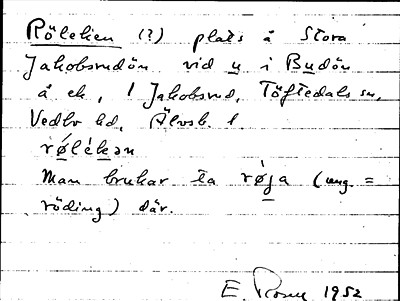 Röleken (?) plats å Stora
Jakobsrudön vid u i Budön
å ek, 1 Jakobsrud, Töftedals sn,
Vedbo hd, Älvsb. l
rølékən
Man brukar ta røja (ung. =
röding) där.
E. 1952